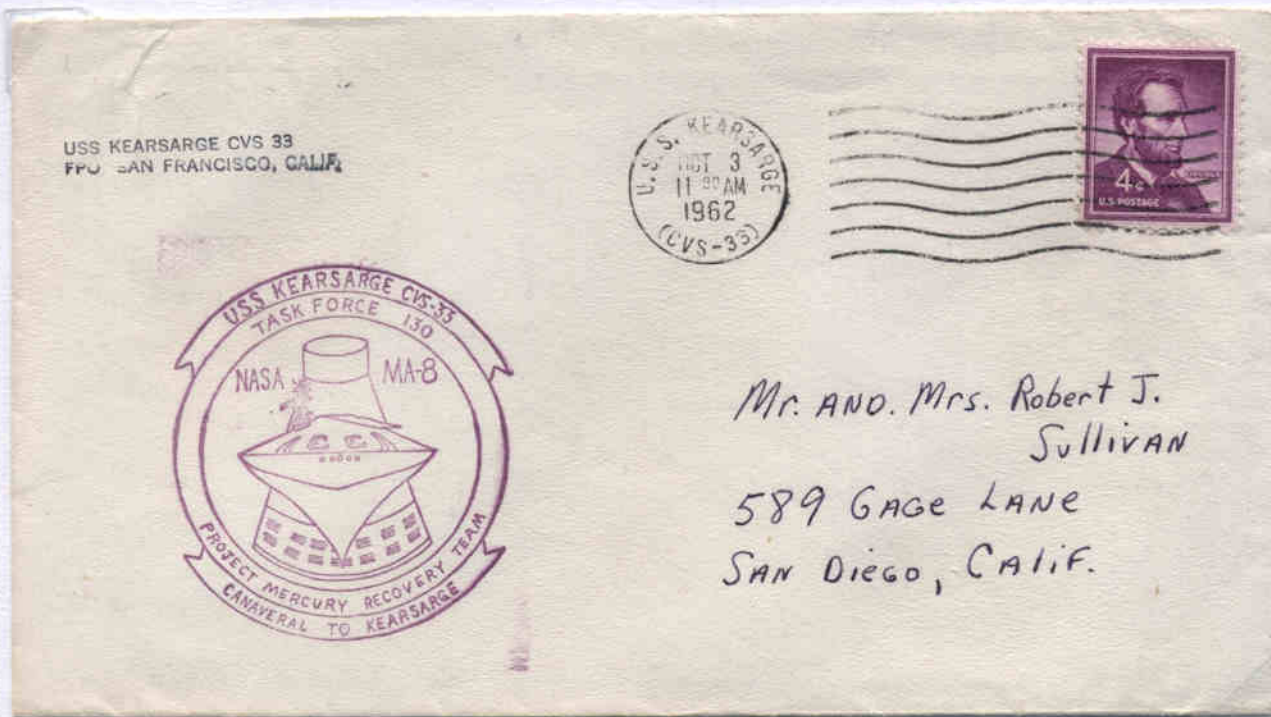 USS KEARSARGE CVS 33
FPO SAN FRANCISCO, CALIF.
U.S.S. KEARSARGE
OCT 3
11 AM
1962
(CVS-33)
4¢
U.S. POSTAGE
USS KEARSARGE CVS-33
TASK FORCE 130
NASA MA-8
PROJECT MERCURY RECOVERY TEAM
CANAVERAL TO KEARSARGE
Mr. AND. Mrs. Robert J.
Sullivan
589 Gage Lane
San Diego, Calif.